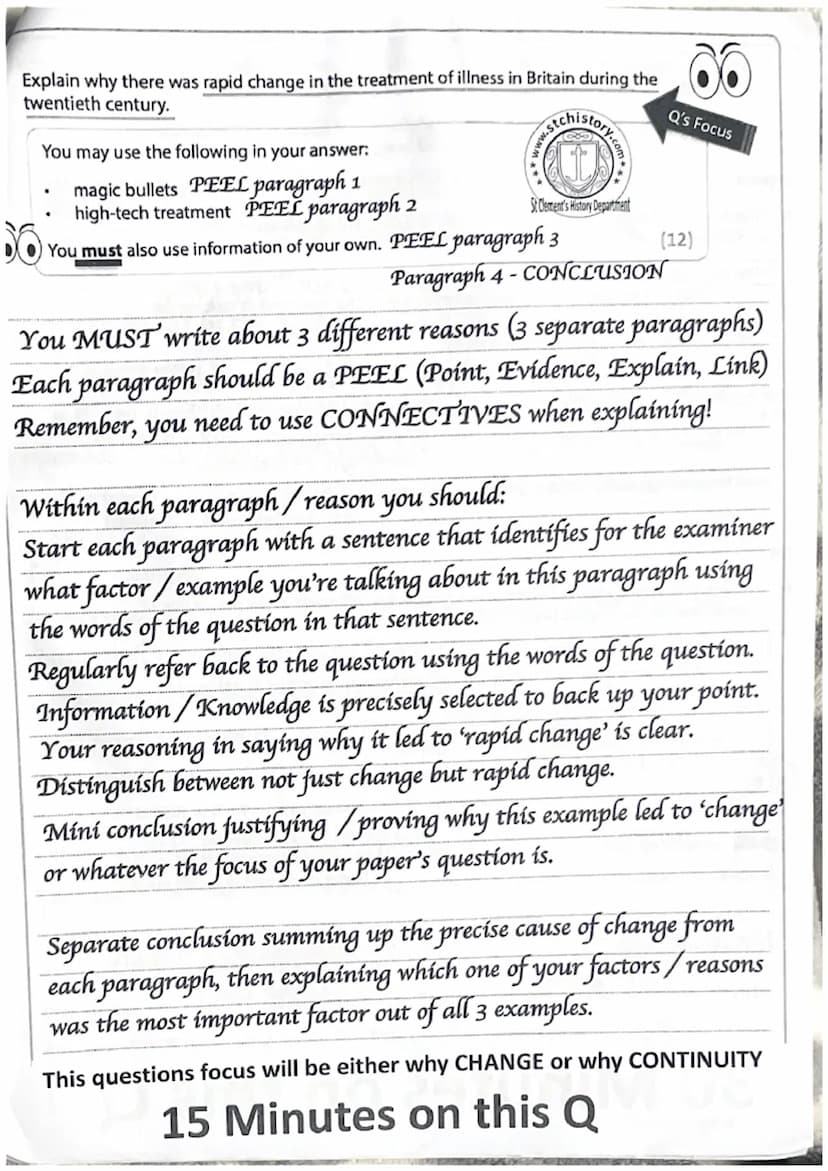 Explain why there was rapid change in the treatment of illness in Britain during the
twentieth century.
Q's Focus
www.stchistory.com
St Clement's History Department
You may use the following in your answer:
• magic bullets PEEL paragraph 1
• high-tech treatment PEEL paragraph 2
You must also use information of your own. PEEL paragraph 3 (12)
Paragraph 4 - CONCLUSION
You MUST write about 3 different reasons (3 separate paragraphs)
Each paragraph should be a PEEL (Point, Evidence, Explain, Link)
Remember, you need to use CONNECTIVES when explaining!
Within each paragraph / reason you should:
Start each paragraph with a sentence that identifies for the examiner
what factor / example you're talking about in this paragraph using
the words of the question in that sentence.
Regularly refer back to the question using the words of the question.
Information / Knowledge is precisely selected to back up your point.
Your reasoning in saying why it led to 'rapid change' is clear.
Distinguish between not just change but rapid change.
Mini conclusion justifying / proving why this example led to 'change'
or whatever the focus of your paper's question is.
Separate conclusion summing up the precise cause of change from
each paragraph, then explaining which one of your factors / reasons
was the most important factor out of all 3 examples.
This questions focus will be either why CHANGE or why CONTINUITY
15 Minutes on this Q